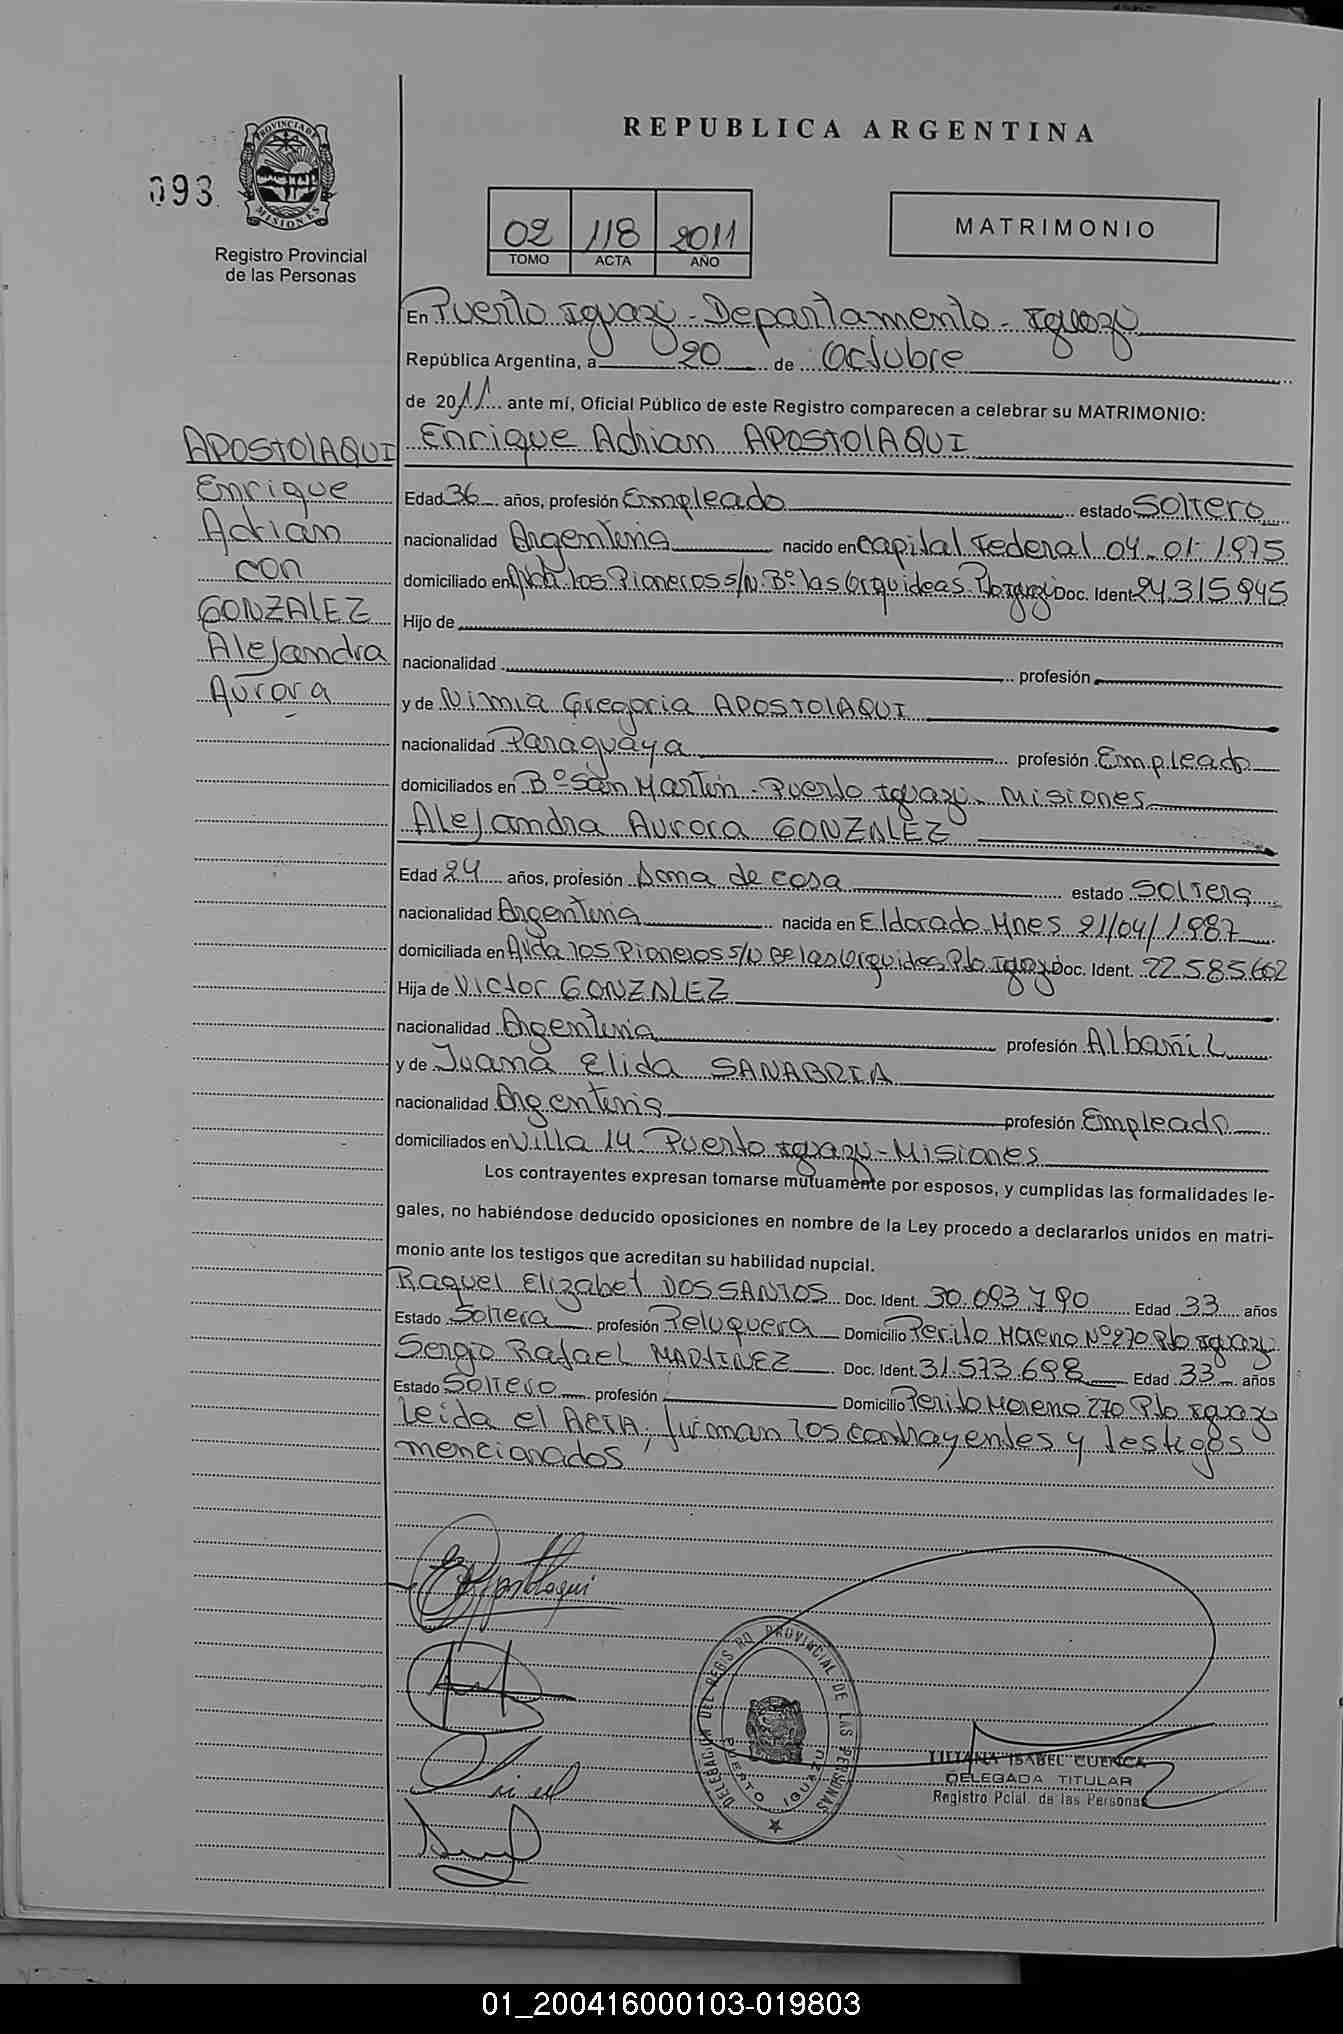 REPUBLICA ARGENTINA
093
PROVINCIA DE MISIONES
Registro Provincial
de las Personas
02 118 2011
TOMO ACTA AÑO
MATRIMONIO
En Puerto Iguazú - Departamento - Iguazú
República Argentina, a 20 de Octubre
de 2011 ante mí, Oficial Público de este Registro comparecen a celebrar su MATRIMONIO:
APOSTOLAQUI
Enrique
Adrian
con
GONZALEZ
Alejandra
Aurora
Enrique Adrian APOSTOLAQUI
Edad 36 años, profesión Empleado estado Soltero
nacionalidad Argentina nacido en Capital Federal 04-01-1975
domiciliado en Avda los Pioneros s/N Bº las Orquideas Pto Iguazú Doc. Ident. 24.315.945
Hijo de
nacionalidad profesión
y de Nimia Gregoria APOSTOLAQUI
nacionalidad Paraguaya profesión Empleado
domiciliados en Bº San Martin - Puerto Iguazú - Misiones
Alejandra Aurora GONZALEZ
Edad 24 años, profesión Ama de casa estado Soltera
nacionalidad Argentina nacida en Eldorado Mnes 21/04/1987
domiciliada en Avda los Pioneros s/N Bº las Orquideas Pto Iguazú Doc. Ident. 22.585.662
Hija de Victor GONZALEZ
nacionalidad Argentina profesión Albañil
y de Juana Elida SANABRIA
nacionalidad Argentina profesión Empleado
domiciliados en Villa 14 Puerto Iguazú - Misiones
Los contrayentes expresan tomarse mutuamente por esposos, y cumplidas las formalidades le-
gales, no habiéndose deducido oposiciones en nombre de la Ley procedo a declararlos unidos en matri-
monio ante los testigos que acreditan su habilidad nupcial.
Raquel Elizabet DOS SANTOS Doc. Ident. 30.093.790 Edad 33 años
Estado Soltera profesión Peluquera Domicilio Perito Moreno Nº 270 Pto Iguazú
Sergio Rafael MARTINEZ Doc. Ident. 31.573.698 Edad 33 años
Estado Soltero profesión Domicilio Perito Moreno 270 Pto Iguazú
Leida el ACTA, firman los contrayentes y testigos
mencionados
DELEGACION DEL REGISTRO PROVINCIAL DE LAS PERSONAS
PUERTO IGUAZU
LILIANA ISABEL CUENCA
DELEGADA TITULAR
Registro Pcial. de las Personas
01_200416000103-019803